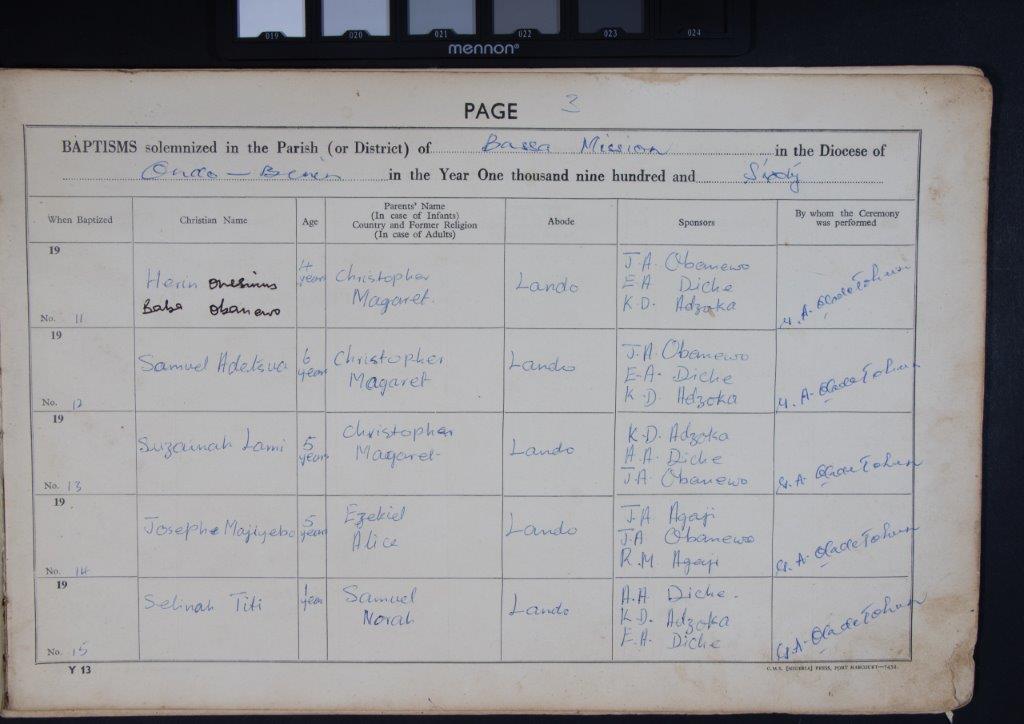 019 020 021 022 023 024
mennon®
PAGE 3
BAPTISMS solemnized in the Parish (or District) of Bassa Mission in the Diocese of
Ondo - Benin in the Year One thousand nine hundred and Sixty
When Baptized Christian Name Age Parents' Name (In case of Infants) Country and Former Religion (In case of Adults) Abode Sponsors By whom the Ceremony was performed
19
No. 11
Herin onesimus
Baba obanewo
4 years
Christopher
Magaret.
Lando
J.A. Obanewo
E-A Diche
K.D. Adzoka
A. OladeTohun
19
No. 12
Samuel Adetsua
6 years
Christopher
Magaret
Lando
J.A. Obanewo
E-A- Diche
K.D. Adzoka
A. OladeTohun
19
No. 13
Suzainah Lami
5 years
Christopher
Magaret
Lando
K.D. Adzoka
A.A. Diche
J.A. Obanewo
A. OladeTohun
19
No. 14
Josephe Majiyebo
5 years
Ezekiel
Alice
Lando
J.A. Agaji
J.A Obanewo
R.M. Agaji
A. OladeTohun
19
No. 15
Selinah Titi
1 year
Samuel
Norah
Lando
A.A Diche.
K.D. Adzoka
E.A. Diche
A. OladeTohun
Y 13
C.M.S. [NIGERIA] PRESS, PORT HARCOURT—7452.